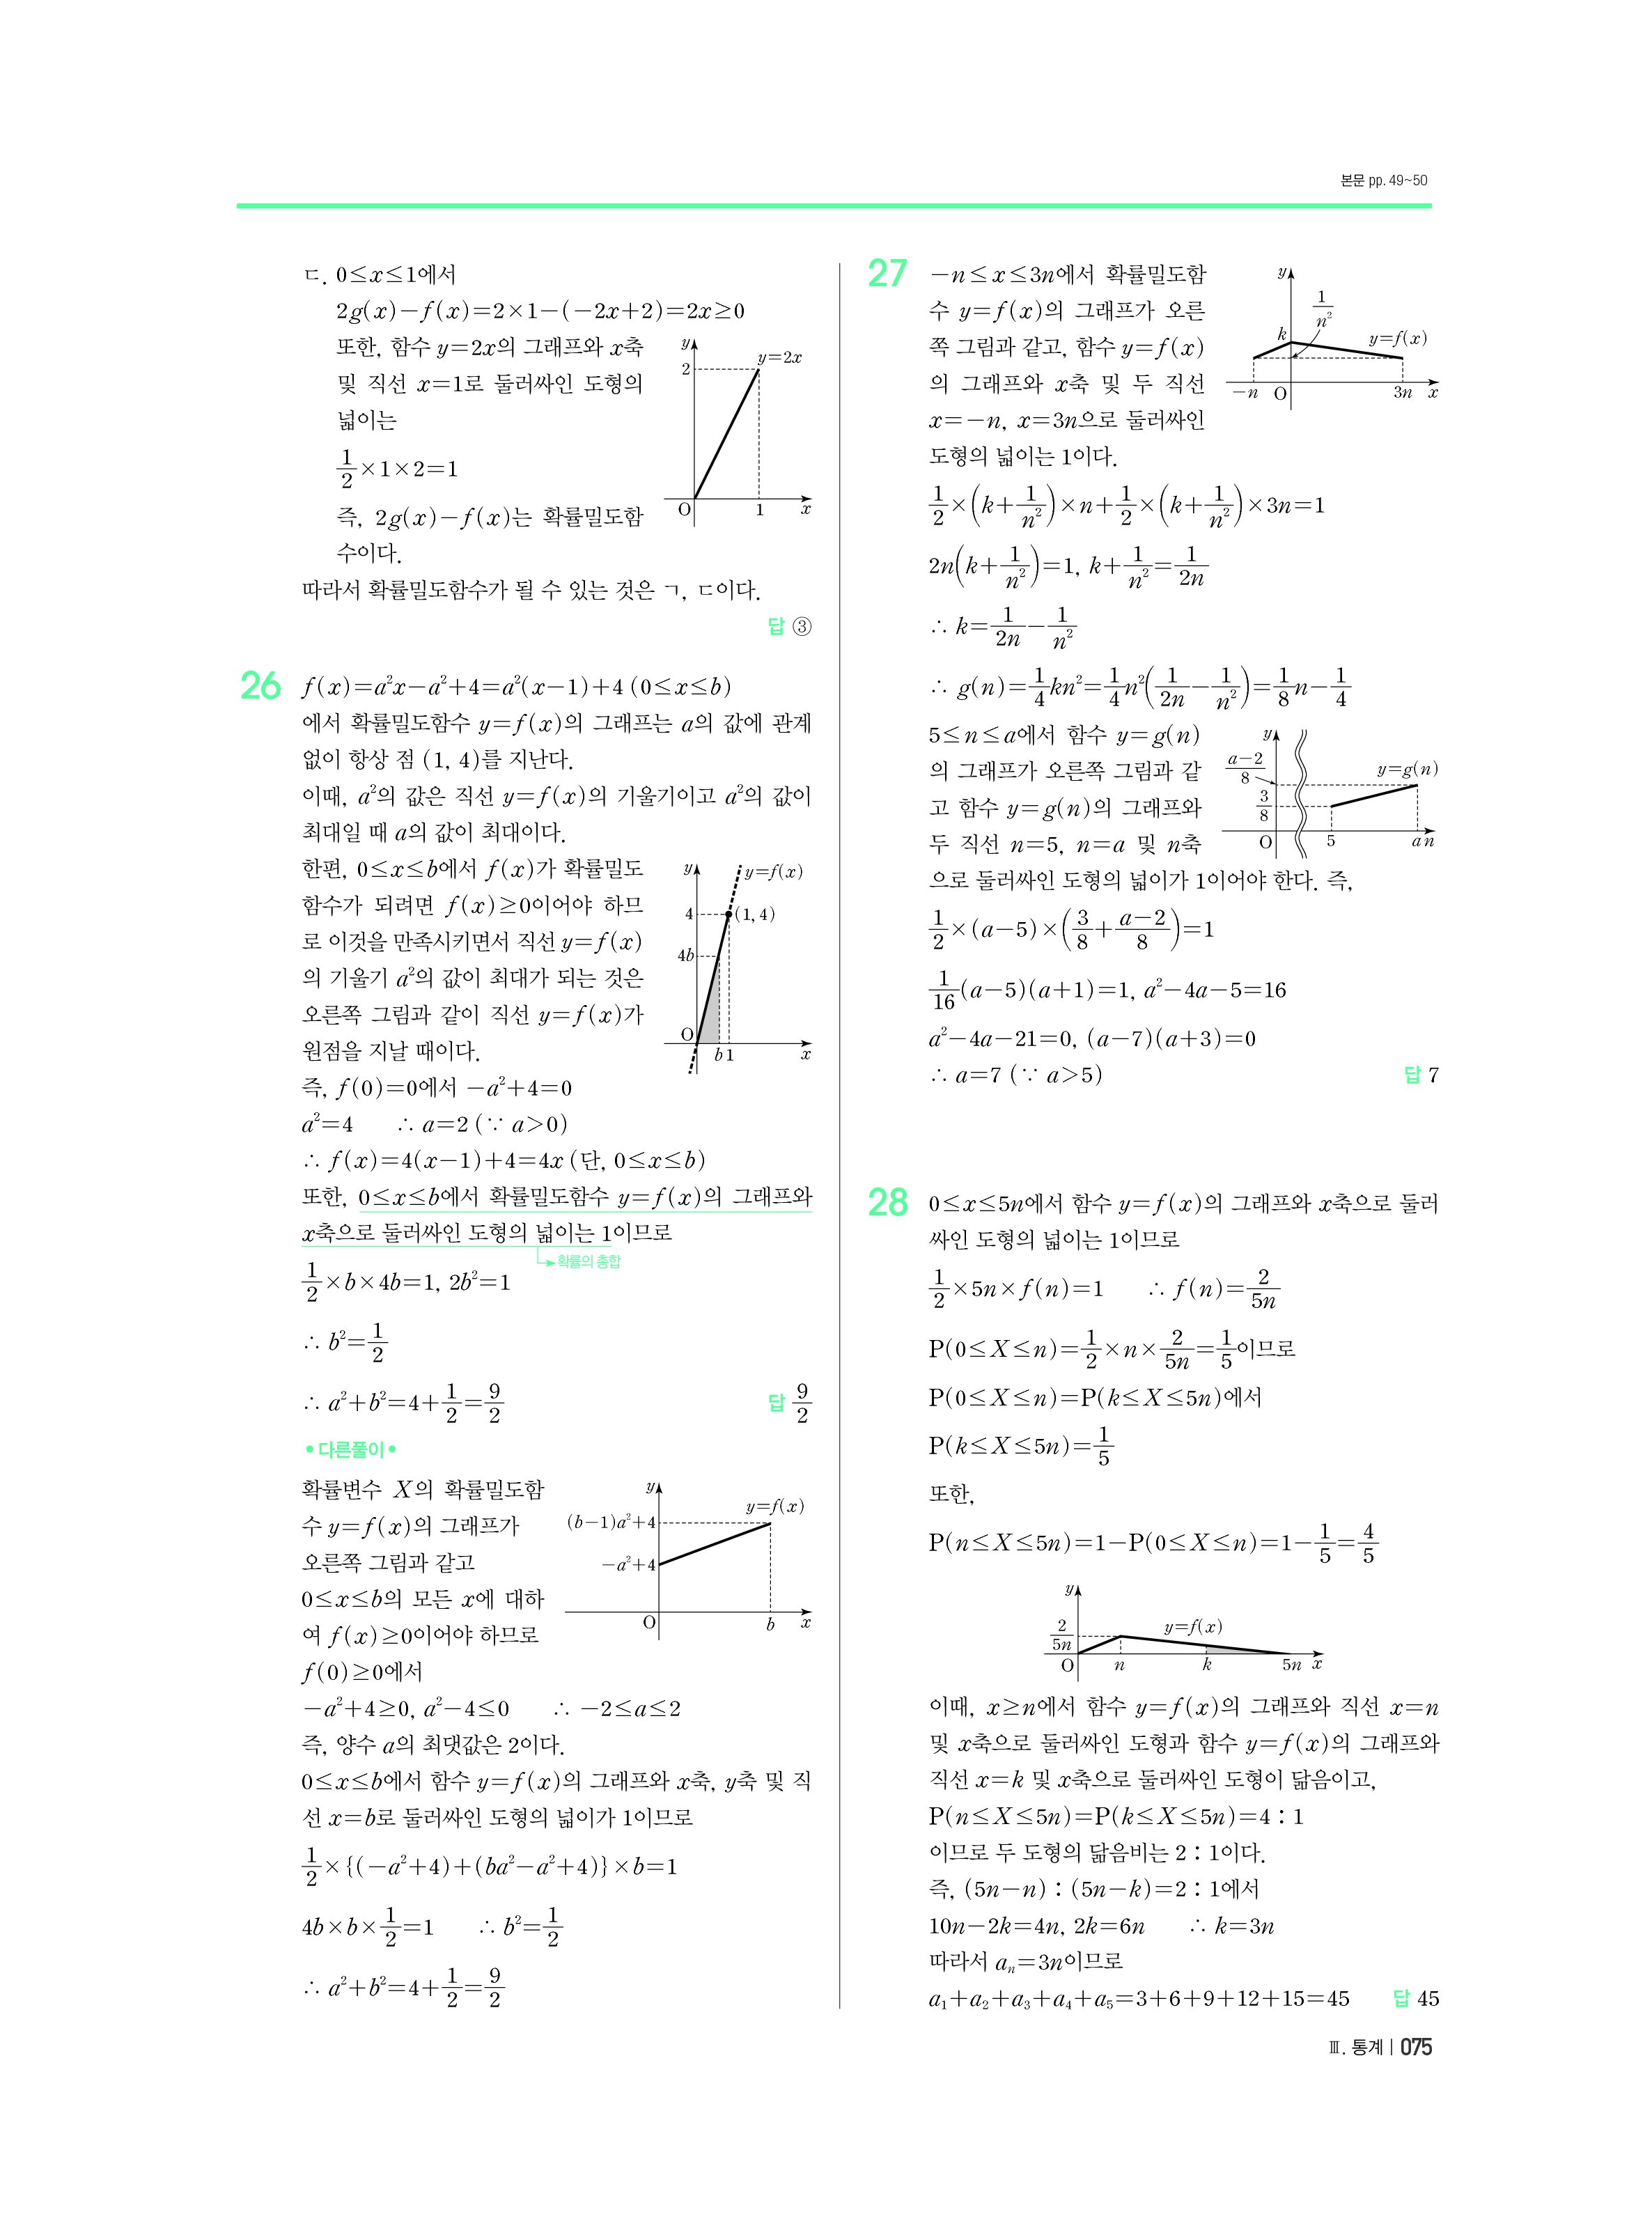 본문 pp. 49~50
ㄷ. 0≤x≤1에서
2g(x)-f(x)=2×1-(-2x+2)=2x≥0
또한, 함수 y=2x의 그래프와 x축
및 직선 x=1로 둘러싸인 도형의
넓이는
1/2×1×2=1
즉, 2g(x)-f(x)는 확률밀도함
수이다.
y
y=2x
2
O
1
x
따라서 확률밀도함수가 될 수 있는 것은 ㄱ, ㄷ이다.
답 ③
26
f(x)=a²x-a²+4=a²(x-1)+4 (0≤x≤b)
에서 확률밀도함수 y=f(x)의 그래프는 a의 값에 관계
없이 항상 점 (1, 4)를 지난다.
이때, a²의 값은 직선 y=f(x)의 기울기이고 a²의 값이
최대일 때 a의 값이 최대이다.
한편, 0≤x≤b에서 f(x)가 확률밀도
함수가 되려면 f(x)≥0이어야 하므
로 이것을 만족시키면서 직선 y=f(x)
의 기울기 a²의 값이 최대가 되는 것은
오른쪽 그림과 같이 직선 y=f(x)가
원점을 지날 때이다.
y
y=f(x)
4
(1, 4)
4b
O
b 1
x
즉, f(0)=0에서 -a²+4=0
a²=4 ∴ a=2 (∵ a>0)
∴ f(x)=4(x-1)+4=4x (단, 0≤x≤b)
또한, 0≤x≤b에서 확률밀도함수 y=f(x)의 그래프와
x축으로 둘러싸인 도형의 넓이는 1이므로
확률의 총합
1/2×b×4b=1, 2b²=1
∴ b²=1/2
∴ a²+b²=4+1/2=9/2 답 9/2
•다른풀이•
확률변수 X의 확률밀도함
수 y=f(x)의 그래프가
오른쪽 그림과 같고
0≤x≤b의 모든 x에 대하
여 f(x)≥0이어야 하므로
y
y=f(x)
(b-1)a²+4
-a²+4
O
b
x
f(0)≥0에서
-a²+4≥0, a²-4≤0 ∴ -2≤a≤2
즉, 양수 a의 최댓값은 2이다.
0≤x≤b에서 함수 y=f(x)의 그래프와 x축, y축 및 직
선 x=b로 둘러싸인 도형의 넓이가 1이므로
1/2×{(-a²+4)+(ba²-a²+4)}×b=1
4b×b×1/2=1 ∴ b²=1/2
∴ a²+b²=4+1/2=9/2
27
-n≤x≤3n에서 확률밀도함
수 y=f(x)의 그래프가 오른
쪽 그림과 같고, 함수 y=f(x)
의 그래프와 x축 및 두 직선
x=-n, x=3n으로 둘러싸인
도형의 넓이는 1이다.
y
1/n²
k
y=f(x)
-n
O
3n
x
1/2×(k+1/n²)×n+1/2×(k+1/n²)×3n=1
2n(k+1/n²)=1, k+1/n²=1/2n
∴ k=1/2n-1/n²
∴ g(n)=1/4kn²=1/4n²(1/2n-1/n²)=1/8n-1/4
5≤n≤a에서 함수 y=g(n)
의 그래프가 오른쪽 그림과 같
고 함수 y=g(n)의 그래프와
두 직선 n=5, n=a 및 n축
으로 둘러싸인 도형의 넓이가 1이어야 한다. 즉,
y
a-2/8
y=g(n)
3/8
O
5
a
n
1/2×(a-5)×(3/8+a-2/8)=1
1/16(a-5)(a+1)=1, a²-4a-5=16
a²-4a-21=0, (a-7)(a+3)=0
∴ a=7 (∵ a>5) 답 7
28
0≤x≤5n에서 함수 y=f(x)의 그래프와 x축으로 둘러
싸인 도형의 넓이는 1이므로
1/2×5n×f(n)=1 ∴ f(n)=2/5n
P(0≤X≤n)=1/2×n×2/5n=1/5이므로
P(0≤X≤n)=P(k≤X≤5n)에서
P(k≤X≤5n)=1/5
또한,
P(n≤X≤5n)=1-P(0≤X≤n)=1-1/5=4/5
y
2/5n
y=f(x)
O
n
k
5n
x
이때, x≥n에서 함수 y=f(x)의 그래프와 직선 x=n
및 x축으로 둘러싸인 도형과 함수 y=f(x)의 그래프와
직선 x=k 및 x축으로 둘러싸인 도형이 닮음이고,
P(n≤X≤5n)=P(k≤X≤5n)=4 : 1
이므로 두 도형의 닮음비는 2 : 1이다.
즉, (5n-n) : (5n-k)=2 : 1에서
10n-2k=4n, 2k=6n ∴ k=3n
따라서 aₙ=3n이므로
a₁+a₂+a₃+a₄+a₅=3+6+9+12+15=45 답 45
Ⅲ. 통계 | 075